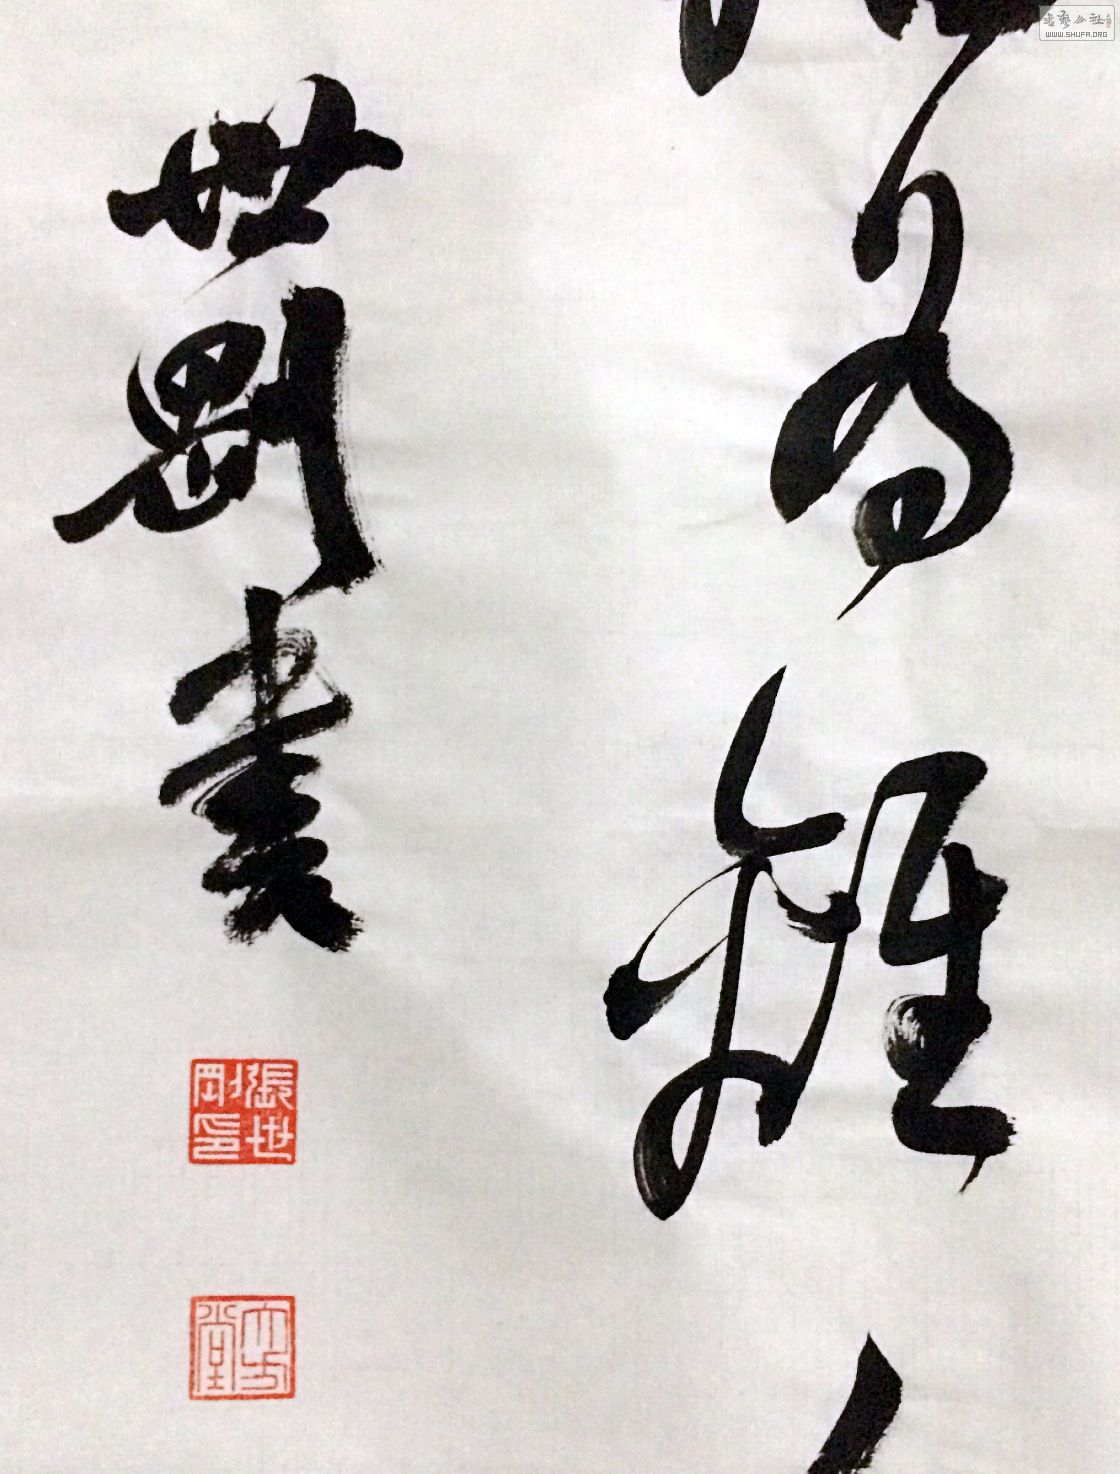 為雄
世剛書
張世剛印
大方堂
書藝公社
WWW.SHUFA.ORG